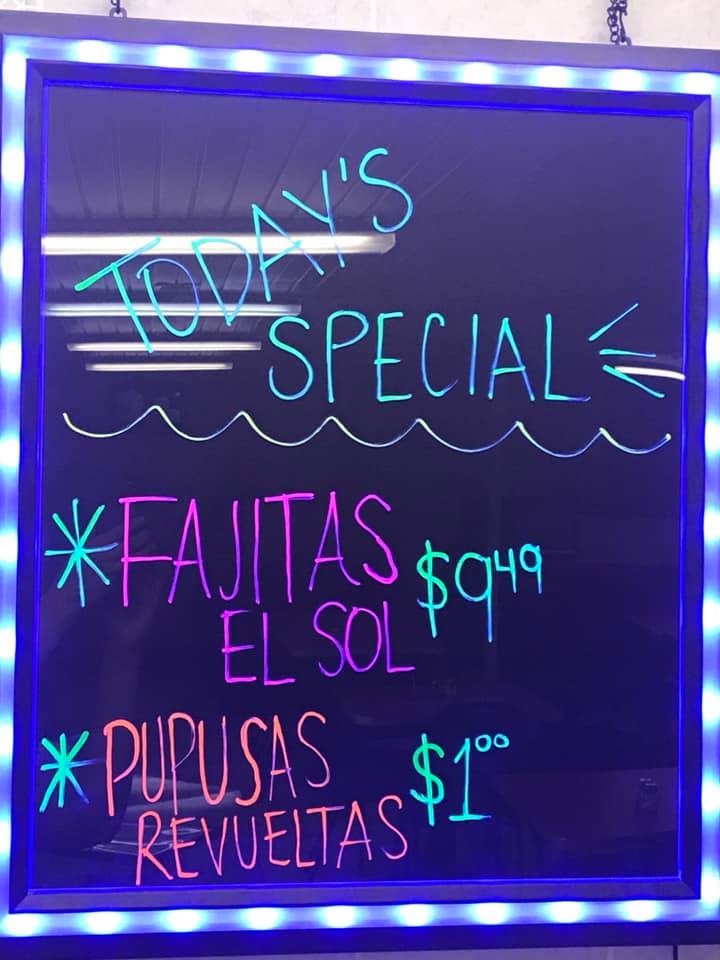 TODAY'S
SPECIAL
* FAJITAS $9.49
EL SOL
* PUPUSAS $1.00
REVUELTAS